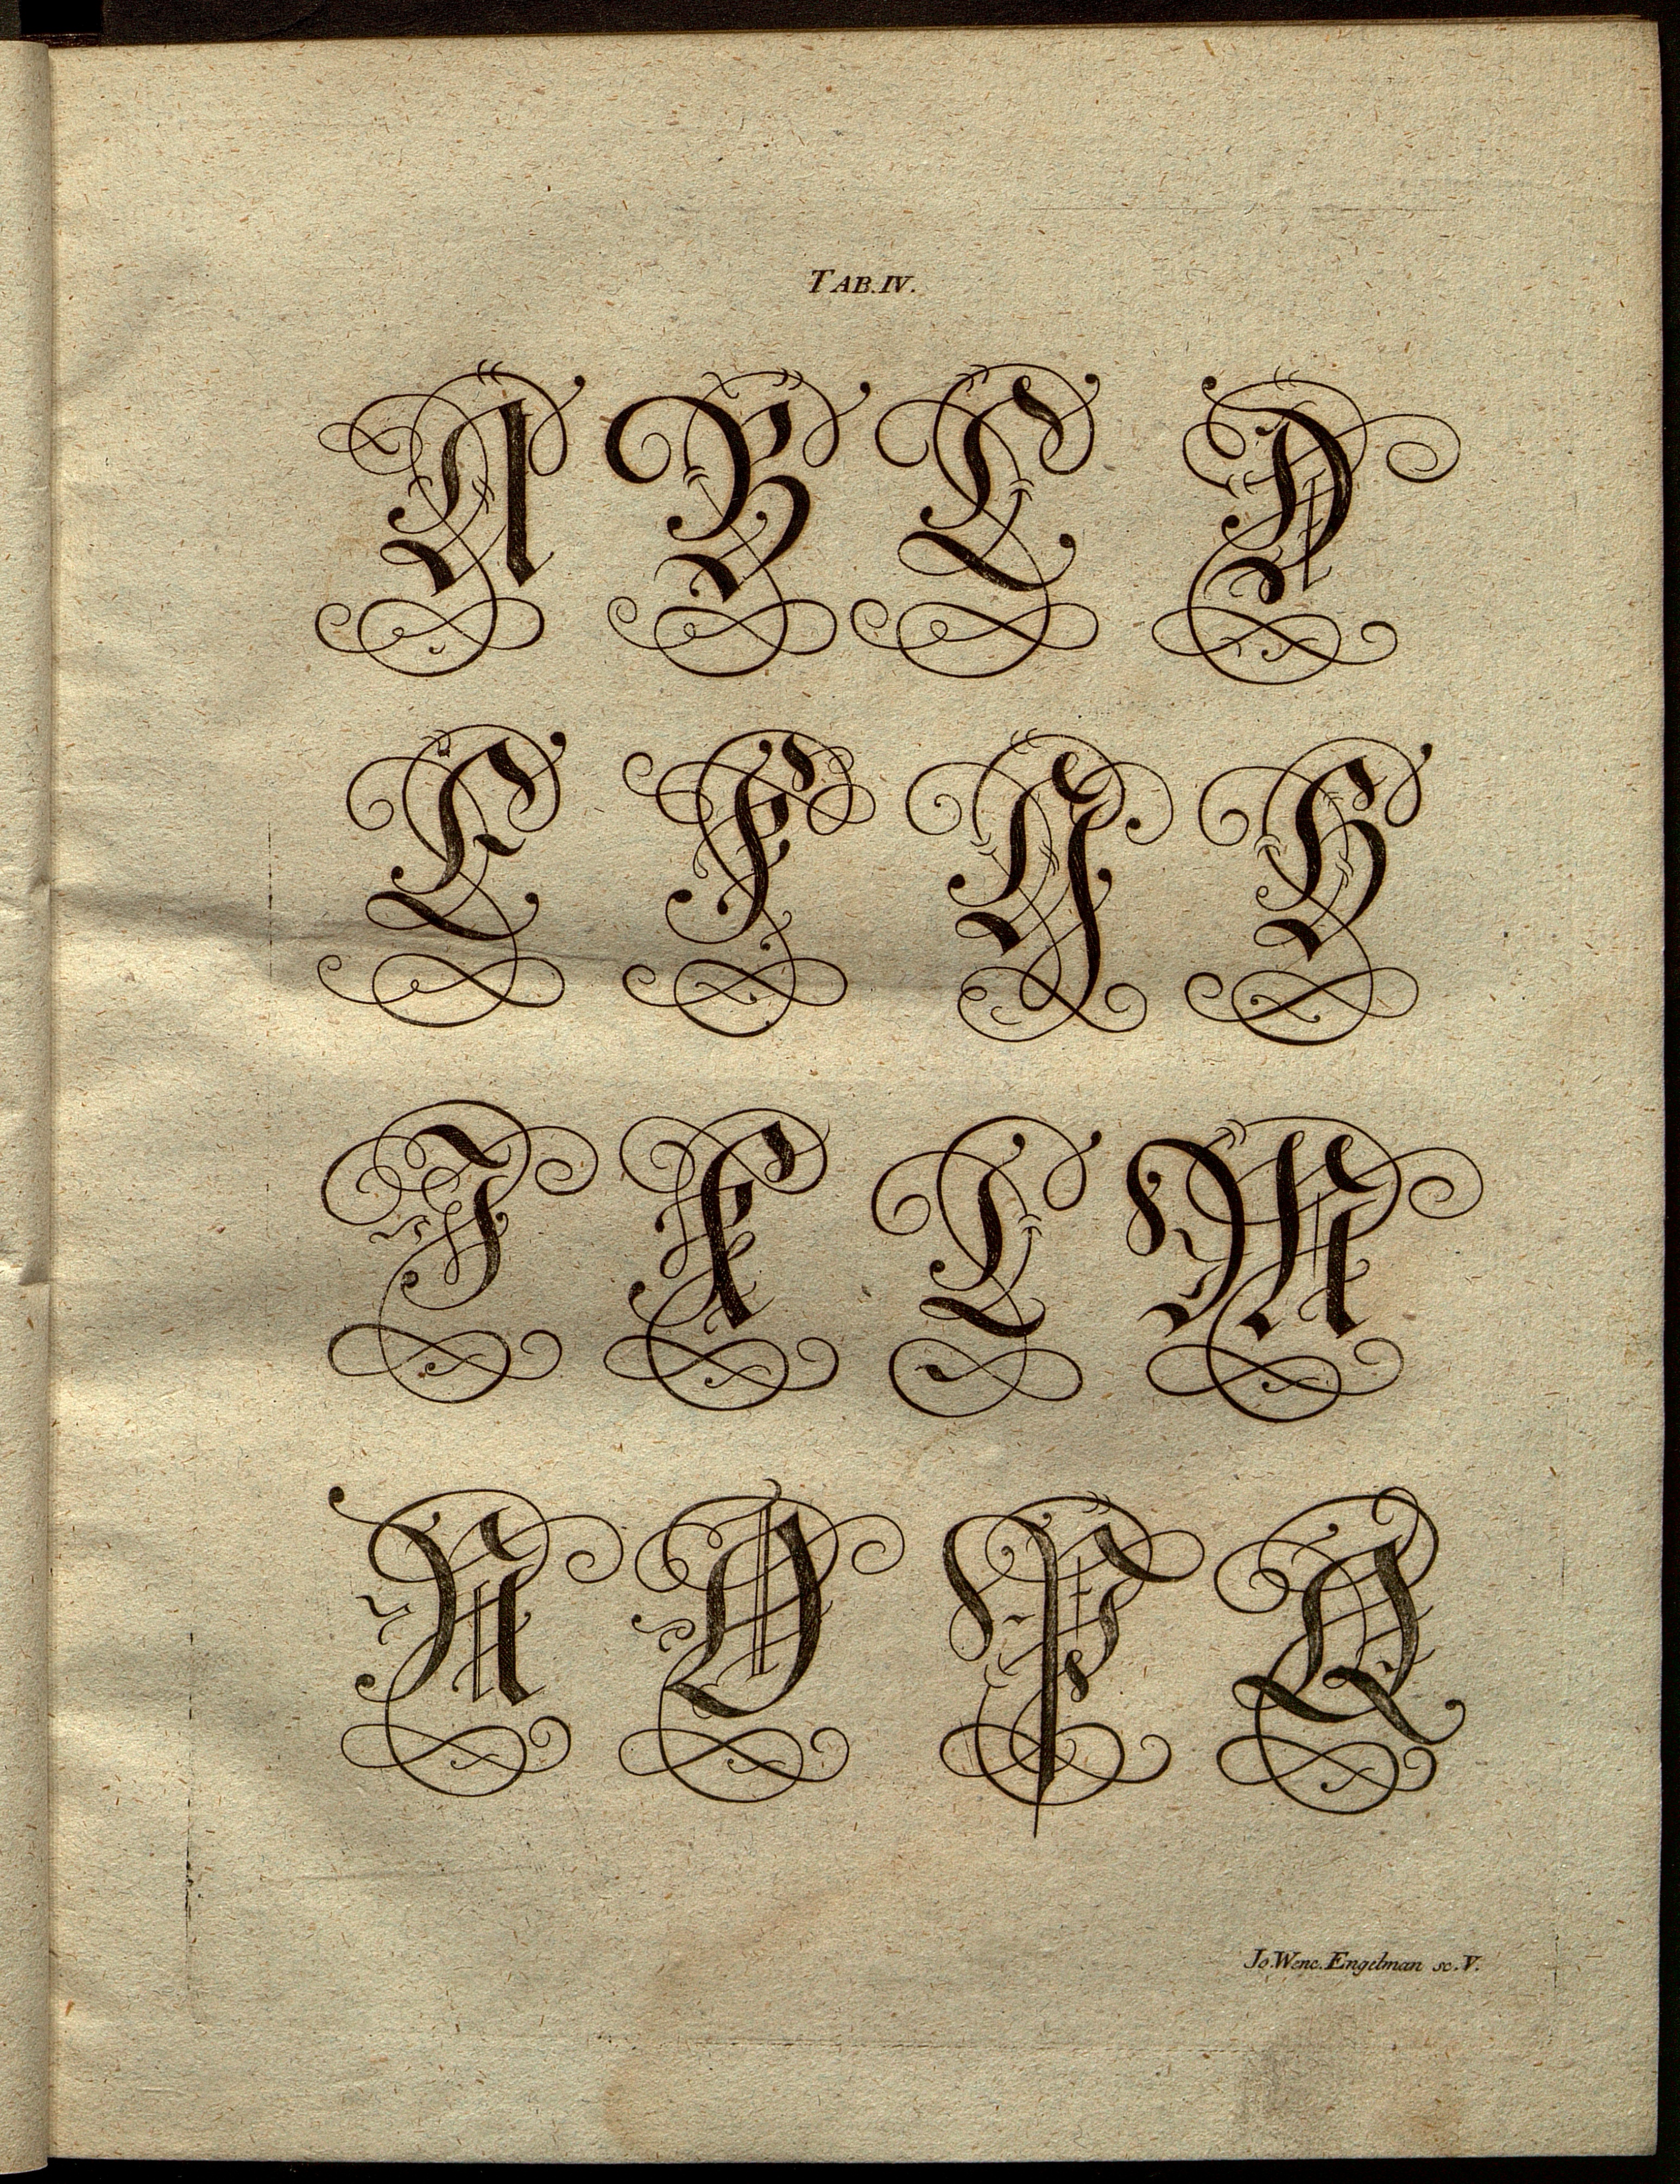 TAB. IV.
A B C D
E F G H
I K L M
N O P Q
Jo. Wenc. Engelman sc. V.